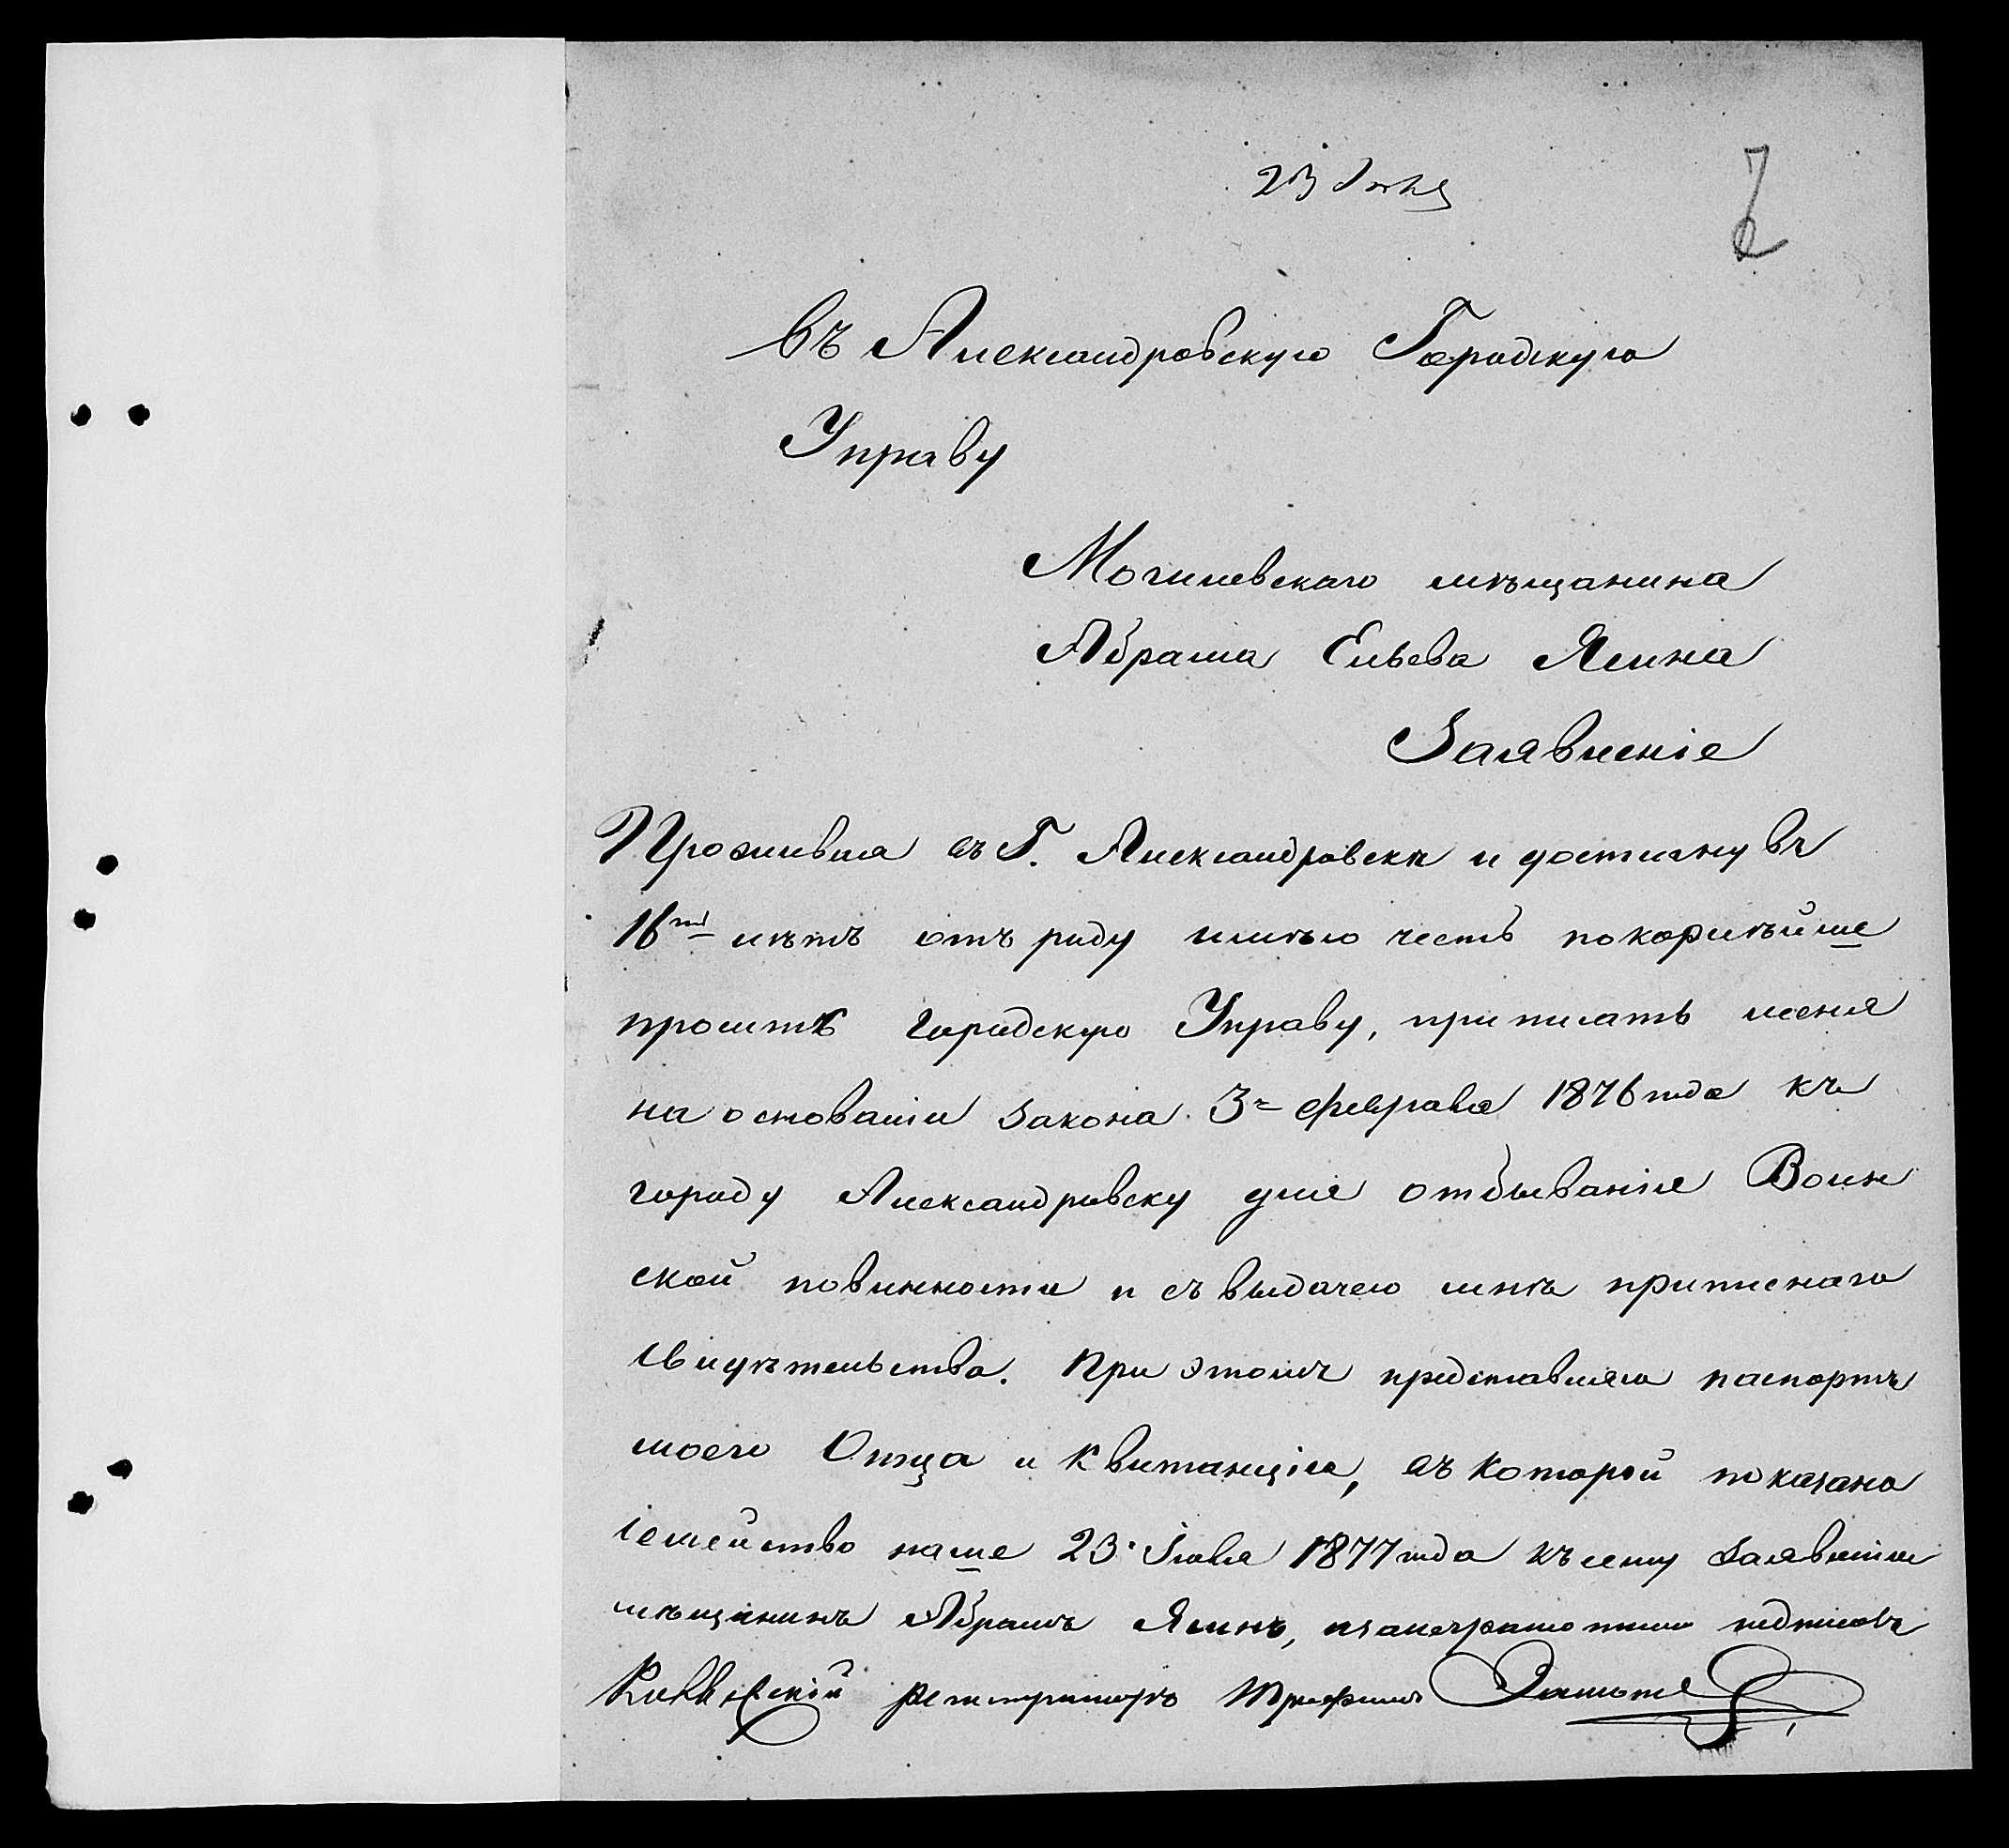 23 Іюля
Въ Александровскую Городскую
Управу
Могилевскаго мѣщанина
Абрама Ельева Ямина
Заявленіе
Проживая въ Г. Александровскѣ и достигнувъ
16ти лѣтъ отъ роду имѣю честь покорнѣйше
проситъ городскую Управу, приписать меня
на основаніи закона 3го февраля 1876 года къ
городу Александровску для отбыванія Воин
ской повинности и съ выдачею мнѣ приписнаго
свидѣтельства. При этомъ представляю паспортъ
моего Отца и квитанція, въ которой показано
семейство наше 23. Іюля 1877 года къ сему заявленію
мѣщанинъ Абрамъ Яминъ, неграмотный подписовъ
регистраторъ Трофимъ